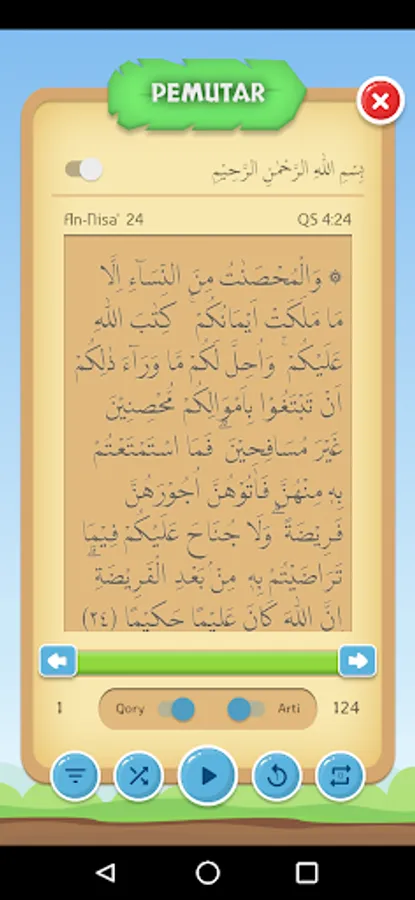 PEMUTAR
بِسْمِ اللّٰهِ الرَّحْمٰنِ الرَّحِيْمِ
An-Nisa' 24 QS 4:24
۞ وَالْمُحْصَنٰتُ مِنَ النِّسَاۤءِ اِلَّا
مَا مَلَكَتْ اَيْمَانُكُمْ ۚ كِتٰبَ اللّٰهِ
عَلَيْكُمْ ۚ وَاُحِلَّ لَكُمْ مَّا وَرَاۤءَ ذٰلِكُمْ
اَنْ تَبْتَغُوْا بِاَمْوَالِكُمْ مُّحْصِنِيْنَ
غَيْرَ مُسَافِحِيْنَ ۗ فَمَا اسْتَمْتَعْتُمْ
بِهٖ مِنْهُنَّ فَاٰتُوْهُنَّ اُجُوْرَهُنَّ
فَرِيْضَةً ۗ وَلَا جُنَاحَ عَلَيْكُمْ فِيْمَا
تَرَاضَيْتُمْ بِهٖ مِنْۢ بَعْدِ الْفَرِيْضَةِ ۗ
اِنَّ اللّٰهَ كَانَ عَلِيْمًا حَكِيْمًا (٢٤)
1 Qory Arti 124